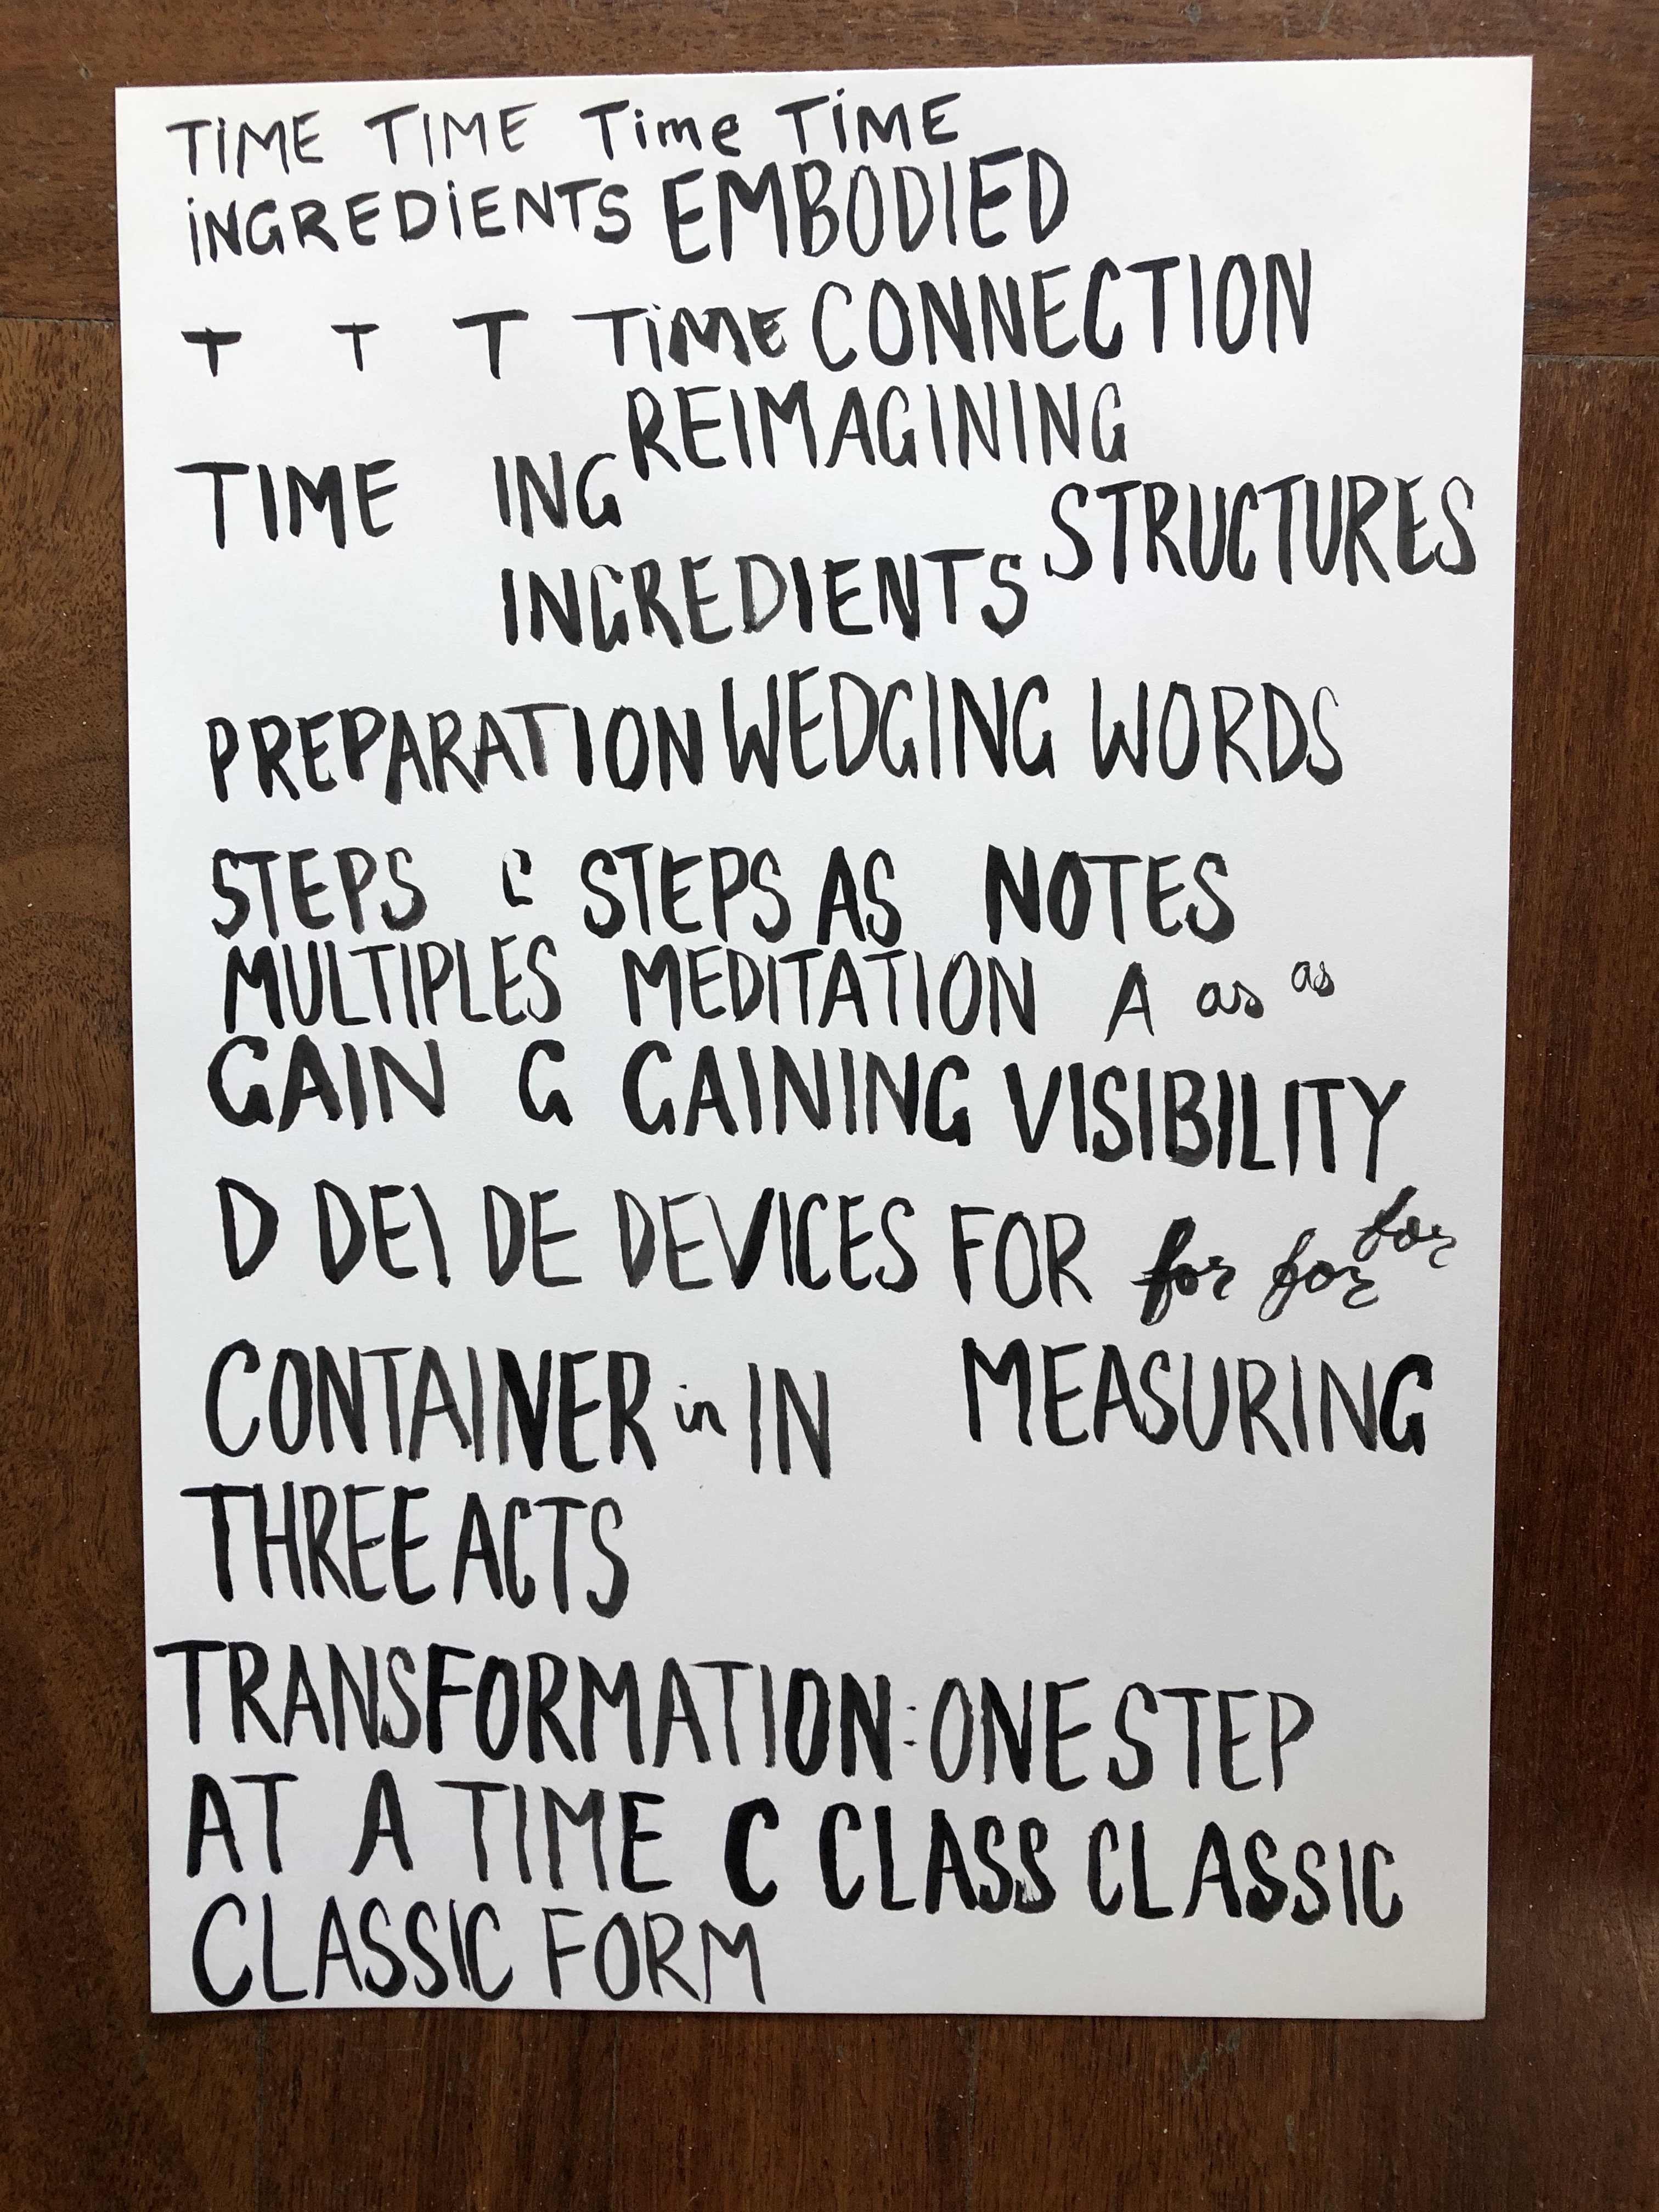 TiME TIME Time TiME
iNGREDiENTS EMBODIED
T T T TiME CONNECTION
REIMAGINING
TIME ING
STRUCTURES
INGREDIENTS
PREPARATION WEDGING WORDS
STEPS STEPS AS NOTES
MULTIPLES MEDITATION A as as
GAIN G GAINING VISIBILITY
D DE\ DE DEVICES FOR for for for
CONTAINER in IN MEASURING
THREE ACTS
TRANSFORMATION: ONE STEP
AT A TIME C CLASS CLASSIC
CLASSIC FORM